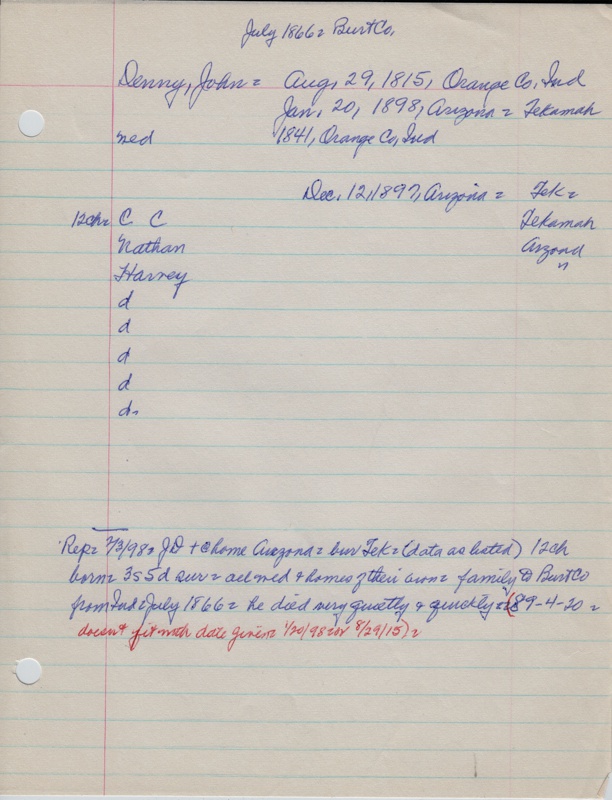 July 1866 = Burt Co.
Denny, John = Aug. 29, 1815, Orange Co, Ind
Jan. 20, 1898, Arizona = Tekamah
wed 1841, Orange Co, Ind
Dec. 12, 1897, Arizona = Tek =
12ch = C C Tekamah
Nathan Arizona
Harvey "
d
d
d
d
d.
Rep = 2/3/98 = JD + @ home Arizona = bur Tek = (data as listed) 12ch
born = 3s 5d sur = all wed + homes of their own = family to Burt Co
from Ind = July 1866 = he died very quietly + quickly = (89-4-20 =
doesn't fit with date given = 1/20/98 or 8/29/15) =